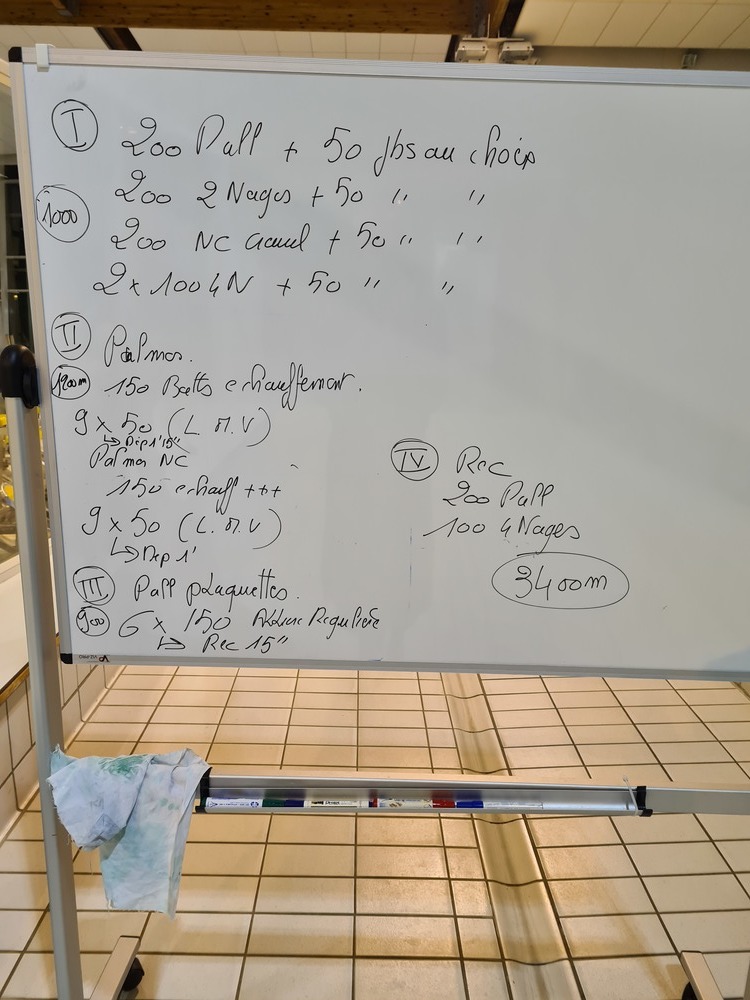 I
200 Pull + 50 Jbs au choix
1000
200 2 Nages + 50 " "
200 NC + 50 " "
2 x 100 4N + 50 " "
II
Palmes.
1200m
150 Batts echauffement.
9 x 50 (L. M. V)
↳ Dep 1'15"
Palmes NC
150 echauff +++
9 x 50 (L. M. V)
↳ Dep 1'
III Pull plaquettes.
900 6 x 150 Allure Régulière
↳ Rec 15"
IV Rec
200 Pull
100 4 Nages
3400m